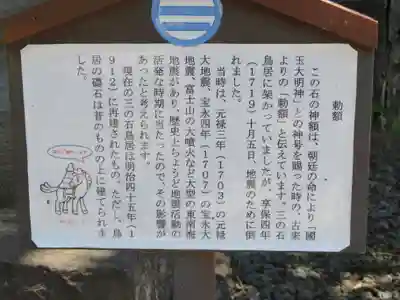 勅額
この石の神額は、朝廷の命により「國
玉大明神」との神号を賜った時の、古来
よりの「勅額」と伝えています。三の石
鳥居に架かっていましたが、享保四年
(1719)十月五日、地震のために倒
れました。
当時は、元禄三年(1703)の元禄
大地震、宝永四年(1707)の宝永大
地震、富士山の大噴火など大型の東南海
地震があり、歴史上ちょうど地震活動の
活発な時期に当たったので、その影響が
あったと考えられます。
現在の三の石鳥居は明治四十五年(1
912)に再建されたもの。ただし、鳥
居の礎石は昔のものの上に建てられま
した。